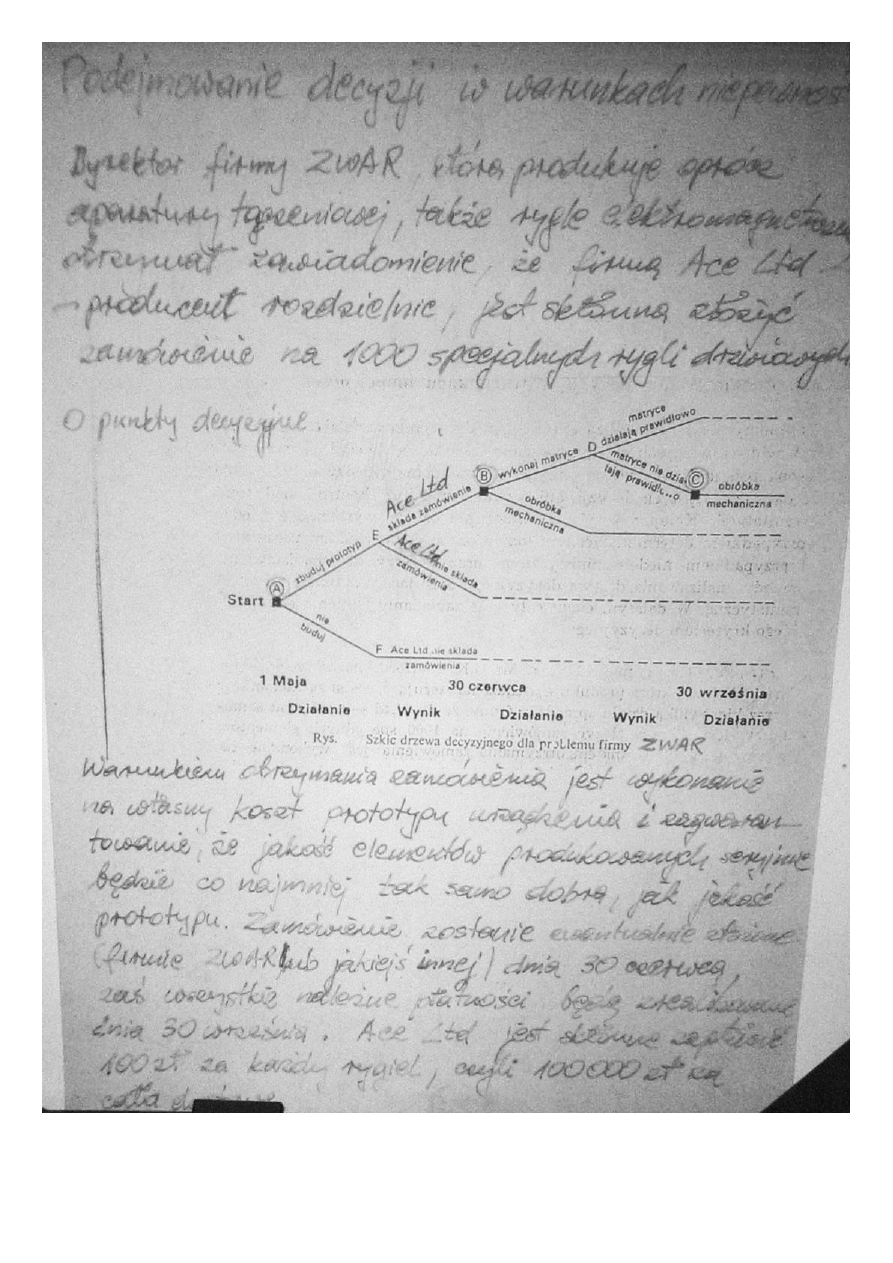 Podejmowanie decyzji w warunkach niepewnoś
Dyrektor firmy ZWAR, która produkuje oprócz
aparatury łączeniowej, także rygle elektromagnetyczne
otrzymał zawiadomienie, że firma Ace Ltd -
- producent rozdzielnic, jest skłonna złożyć
zamówienie na 1000 specjalnych rygli drzwiowych
O punkty decyzyjne.
matryce
działają prawidłowo
D
wykonaj matryce
matryce nie dzia-
łają prawidł...o
C
obróbka
mechaniczna
B
obróbka
mechaniczna
Ace Ltd
składa zamówienie
E
Ace Ltd
nie składa
zamówienia
zbuduj prototyp
Start
A
nie
buduj
F Ace Ltd nie składa
zamówienia
1 Maja 30 czerwca 30 września
Działanie Wynik Działanie Wynik Działanie
Rys. Szkic drzewa decyzyjnego dla problemu firmy ZWAR
Warunkiem otrzymania zamówienia jest wykonanie
na własny koszt prototypu urządzenia i zagwaran-
towanie, że jakość elementów produkowanych seryjnie
będzie co najmniej tak samo dobra, jak jakość
prototypu. Zamówienie zostanie ewentualnie złożone
(firmie ZWAR lub jakiejś innej) dnia 30 czerwca,
zaś wszystkie należne płatności będą zrealizowane
dnia 30 września. Ace Ltd jest skłonne zapłacić
100 zł za każdy rygiel, czyli 100000 zł za
całą